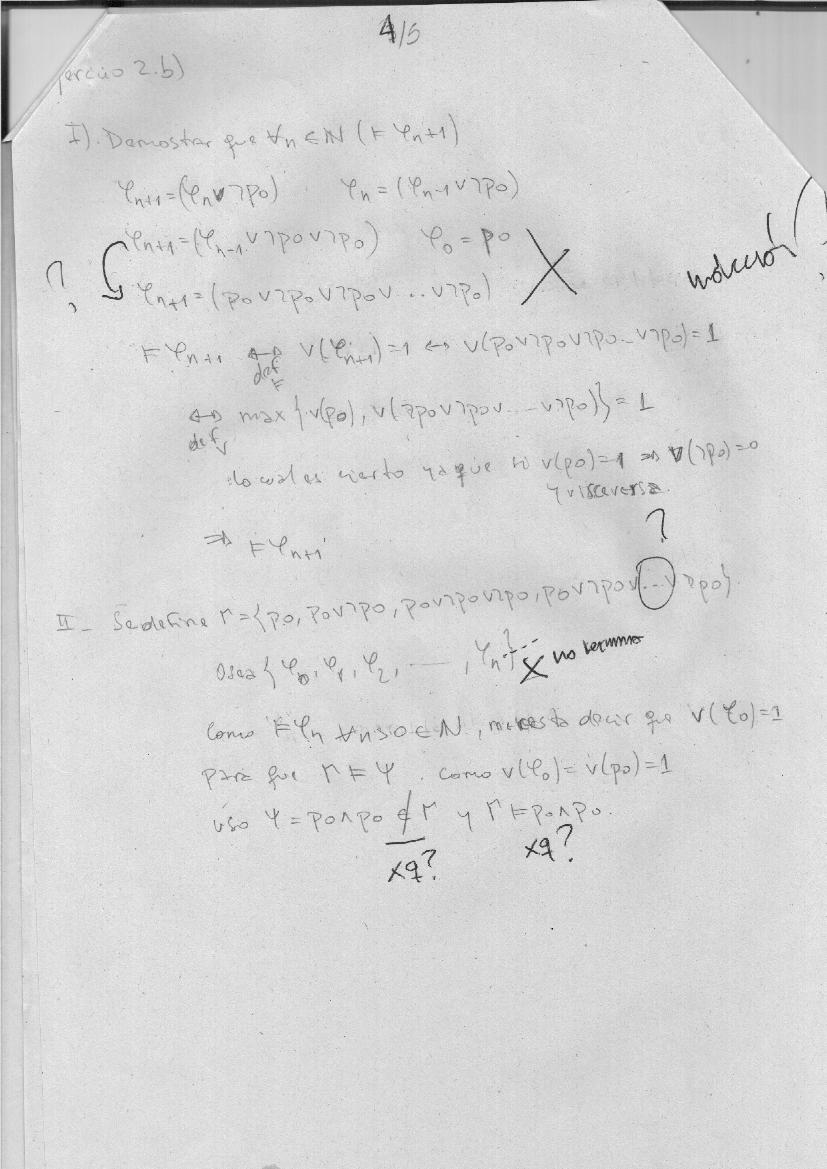 4/5
jercicio 2.b)
I). Demostrar que ∀n ∈ ℕ (⊨ φn+1)
φn+1=(φn∨¬p0) φn=(φn-1∨¬p0)
φn+1=(φn-1∨¬p0∨¬p0) φ0=p0
? φn+1=(p0∨¬p0∨¬p0∨...∨¬p0) X inducción?
⊨φn+1 ↔ def ⊨ v(φn+1)=1 ↔ v(p0∨¬p0∨¬p0...∨¬p0)=1
↔ def v max{v(p0), v(¬p0∨¬p0∨...∨¬p0)}=1
lo cual es cierto ya que si v(p0)=1 ⇒ v(¬p0)=0
y visceversa.
⇒ ⊨φn+1
?
II- Se define Γ={p0, p0∨¬p0, p0∨¬p0∨¬p0, p0∨¬p0∨...∨¬p0}.
Osea {φ0, φ1, φ2, ..., φn} ... X no termina
como ⊨φn ∀n>0 ∈ ℕ, decir que v(φ0)=1
para que Γ⊨ψ. como v(φ0)=v(p0)=1
uso ψ=p0∧p0 ∉ Γ y Γ⊨p0∧p0.
xq? xq?